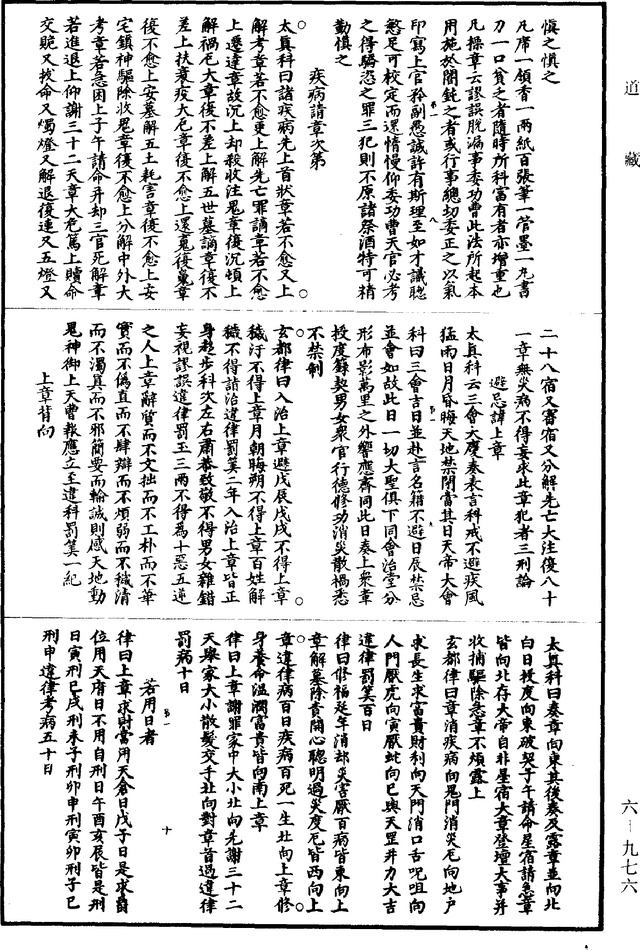 道藏
慎之慎之
凡席一領香一兩紙百張筆一管墨一九書
刀一口貧之者隨時所科富有者亦增重也
凡操章云謬誤脫漏事委功曹此法所起本
用施於闇鈍之者或行事總切委正之以氣
印寫上官矜副愚誠許有斯理至如才識聰
慜足可校定而逐情慢仰委功曹天官必考
之得驕恣之罪三犯則不原諸祭酒特可精
勤慎之
疾病請章次第
太真科曰諸疾病先上首狀章若不愈又上
解考章若不愈更上解先亡罪謫章若不愈
上遷達章故沉上却殺收注鬼章復沉頓上
解禍厄大章復不差上解五世墓謫章復不
差上扶衰疾大厄章復不愈上還魂復魄章
復不愈上安墓解五土耗害章復不愈上安
宅鎮神驅除收鬼章復不愈上分解中外大
考章若急困上子午請命并却三官死解章
若進退上仰謝三十二天章大危篤上贖命
交貺又拔命又燭燈又解退復連又五燈又
二十八宿又害宿又分解先亡大注復八十
一章無災病不得妄求此章犯者三刑論
避忌諱上章
太真科云三會大慶奏表言科戒不避疾風
猛雨日月昏晦天地禁閉當其日天帝大會
科曰三會吉日並赴言名籍不避日辰禁忌
並會如故此日一切大聖俱下同會治堂分
形布影萬里之外響應齊同此日奏上衆章
授度籙契男女衆官行德修功消災散禍悉
不禁制
玄都律曰入治上章避戊辰戊戌不得上章
穢汙不得上章月朝晦朔不得上章百姓解
穢不得詣治違律罰筭二年入治上章皆正
身趍步科次左右肅恭致敬不得男女雜錯
妄視謬誤違律罰玉三兩不得為十惡五逆
之人上章辭質而不文拙而不工朴而不華
實而不偽直而不肆辯而不煩弱而不穢清
而不濁真而不邪簡要而輸誠則感天地動
鬼神御上天曹報應立至違科罰筭一紀
上章背向
太真科曰奏章向東其後奏及露章並向北
白日授度向東破契子午請命星宿請急章
皆向北存大帝自非星宿大章登壇大事并
收捕驅除急章不煩露上
玄都律曰章消疾病向鬼門消災厄向地戶
求長生求富貴財利向天門消口舌呪咀向
人門厭虎向寅厭蛇向巳與天罡并力大吉
違律罰筭百日
律曰修福延年消却災害厭百病皆東向上
章解墓除責開心聰明過災度厄皆西向上
章違律病百日疾病百死一生北向上章修
身養命溫潤富貴皆向南上章
律曰上章謝罪家中大小北向先謝三十二
天舉家大小散髮交手北向對章首過違律
罰病十日
若用日者
律曰上章求財當用天倉日戊子日是求爵
位用天府日不用自刑日午酉亥辰皆是刑
日寅刑巳戌刑未子刑卯申刑寅卯刑子巳
刑申違律考病五十日
十
六－九七六